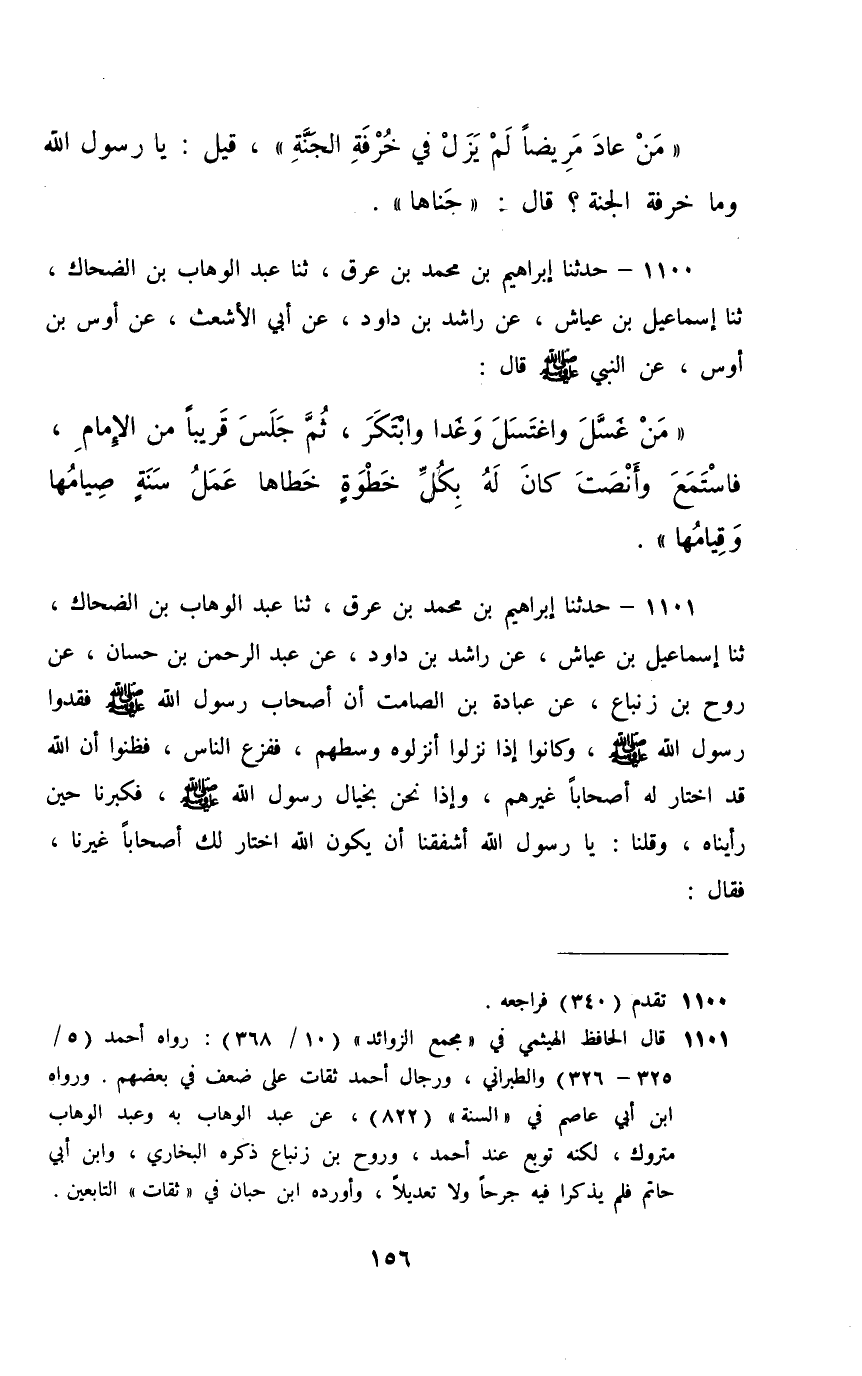 « مَنْ عادَ مَرِيضاً لَمْ يَزَلْ في خُرْفَةِ الجَنَّةِ » ، قيل : يا رسول الله
وما خرفة الجنة ؟ قال : « جَناها » .
١١٠٠ – حدثنا إبراهيم بن محمد بن عرق ، ثنا عبد الوهاب بن الضحاك ،
ثنا إسماعيل بن عياش ، عن راشد بن داود ، عن أبي الأشعث ، عن أوس بن
أوس ، عن النبي ﷺ قال :
« مَنْ غَسَّلَ واغتَسَلَ وَغَدا وابْتَكَرَ ، ثُمَّ جَلَسَ قَرِيباً من الإِمامِ ،
فاسْتَمَعَ وأَنْصَتَ كانَ لَهُ بِكُلِّ خَطْوَةٍ خَطاها عَمَلُ سَنَةٍ صِيامُها
وَقِيامُها » .
١١٠١ – حدثنا إبراهيم بن محمد بن عرق ، ثنا عبد الوهاب بن الضحاك ،
ثنا إسماعيل بن عياش ، عن راشد بن داود ، عن عبد الرحمن بن حسان ، عن
روح بن زنباع ، عن عبادة بن الصامت أن أصحاب رسول الله ﷺ فقدوا
رسول الله ﷺ ، وكانوا إذا نزلوا أنزلوه وسطهم ، ففزع الناس ، فظنوا أن الله
قد اختار له أصحاباً غيرهم ، وإذا نحن بخيال رسول الله ﷺ ، فكبرنا حين
رأيناه ، وقلنا : يا رسول الله أشفقنا أن يكون الله اختار لك أصحاباً غيرنا ،
فقال :
١١٠٠ تقدم (٣٤٠) فراجعه .
١١٠١ قال الحافظ الهيثمي في «مجمع الزوائد» (١٠/ ٣٦٨) : رواه أحمد (٥/
٣٢٥ – ٣٢٦) والطبراني ، ورجال أحمد ثقات على ضعف في بعضهم . ورواه
ابن أبي عاصم في «السنة» (٨٢٢) ، عن عبد الوهاب به وعبد الوهاب
متروك ، لكنه توبع عند أحمد ، وروح بن زنباع ذكره البخاري ، وابن أبي
حاتم فلم يذكرا فيه جرحاً ولا تعديلاً ، وأورده ابن حبان في « ثقات» التابعين .
١٥٦